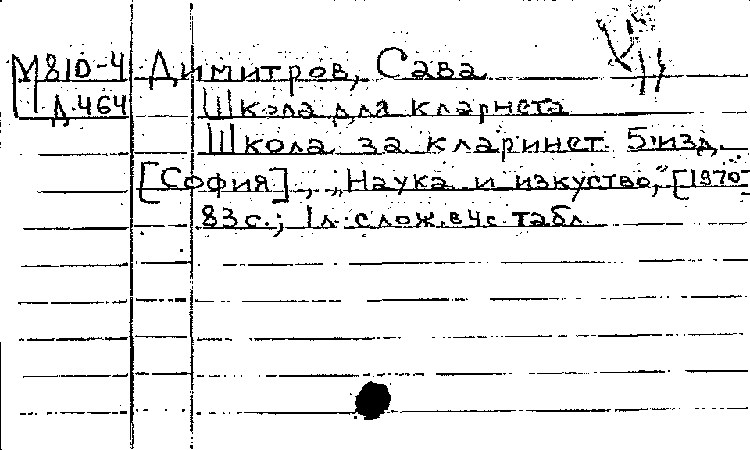 М810-4 Димитров, Сава
Д.464 Школа для кларнета
Школа за кларинет. 5 изд.
[София], „Наука и изкуство," [1970]
83 с.; 1 л. слож. в 4 с. табл.